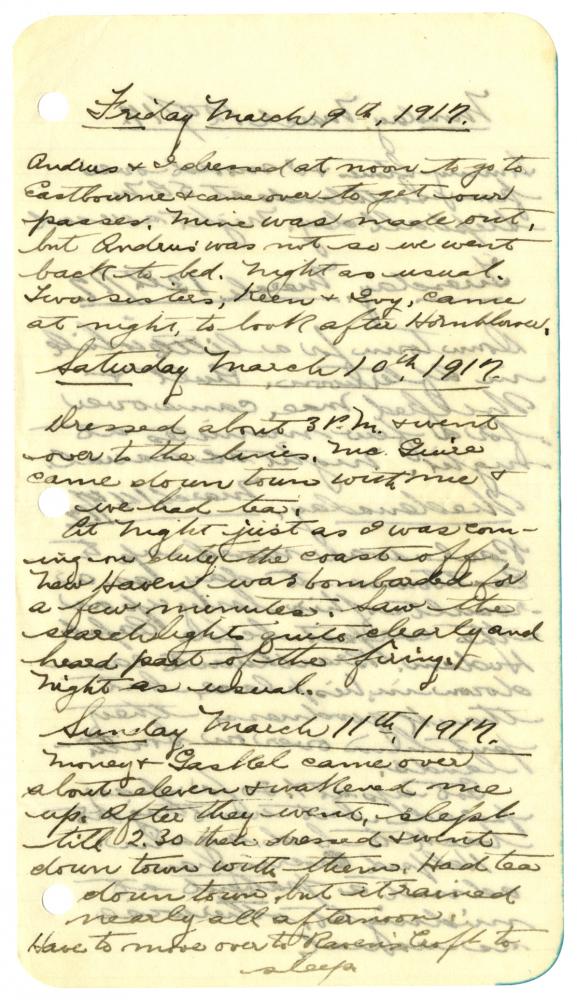 Friday March 9th, 1917.
Andrus & I dressed at noon to go to
Eastbourne & came over to get our
passes. Mine was made out,
but Andrus' was not so we went
back to bed. Night as usual.
Two sisters, Keen & Ivy, came
at night, to look after Hornblower.
Saturday March 10th, 1917.
Dressed about 3 P.M. & went
over to the lines. Mc. Guire
came down town with me &
we had tea.
At night just as I was com-
ing on duty the coast off
New Haven was bombarded for
a few minutes. Saw the
searchlights quite clearly and
heard part of the firing.
Night as usual.
Sunday March 11th, 1917.
Money & Gaskel came over
about eleven & wakened me
up. After they went, slept
till 2.30 then dressed & went
down town with them. Had tea
down town, but it rained
nearly all afternoon.
Have to move over to Raven's Croft to
sleep